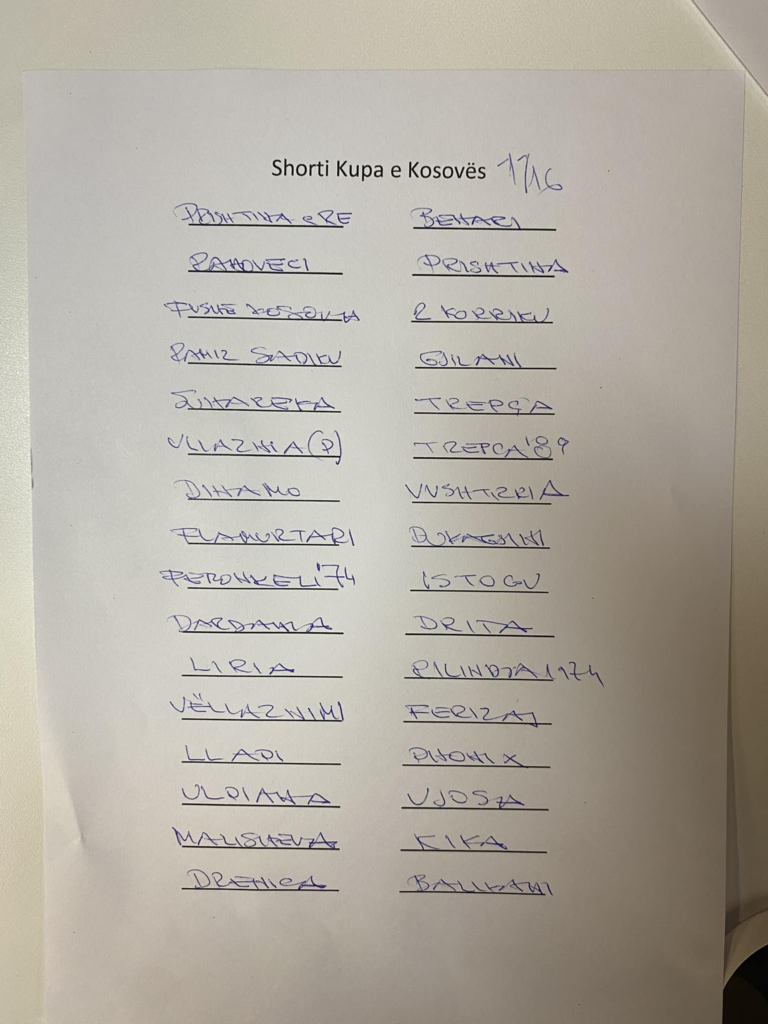 Shorti Kupa e Kosovës 1/16
PRISHTINA E RE BEHARI
RAHOVECI PRISHTINA
FUSHË KOSOVA 2 KORRIKU
RAMIZ SADIKU GJILANI
SUHAREKA TREPÇA
VLLAZNIA (P) TREPÇA'89
DINAMO VUSHTRRIA
FLAMURTARI DUKAGJINI
FERONIKELI'74 ISTOGU
DARDANA DRITA
LIRIA RILINDJA 1974
VËLLAZNIMI FERIZAJ
LLAPI PHONIX
ULPIANA VJOSA
MALISHEVA KIKA
DRENICA BALLKANI